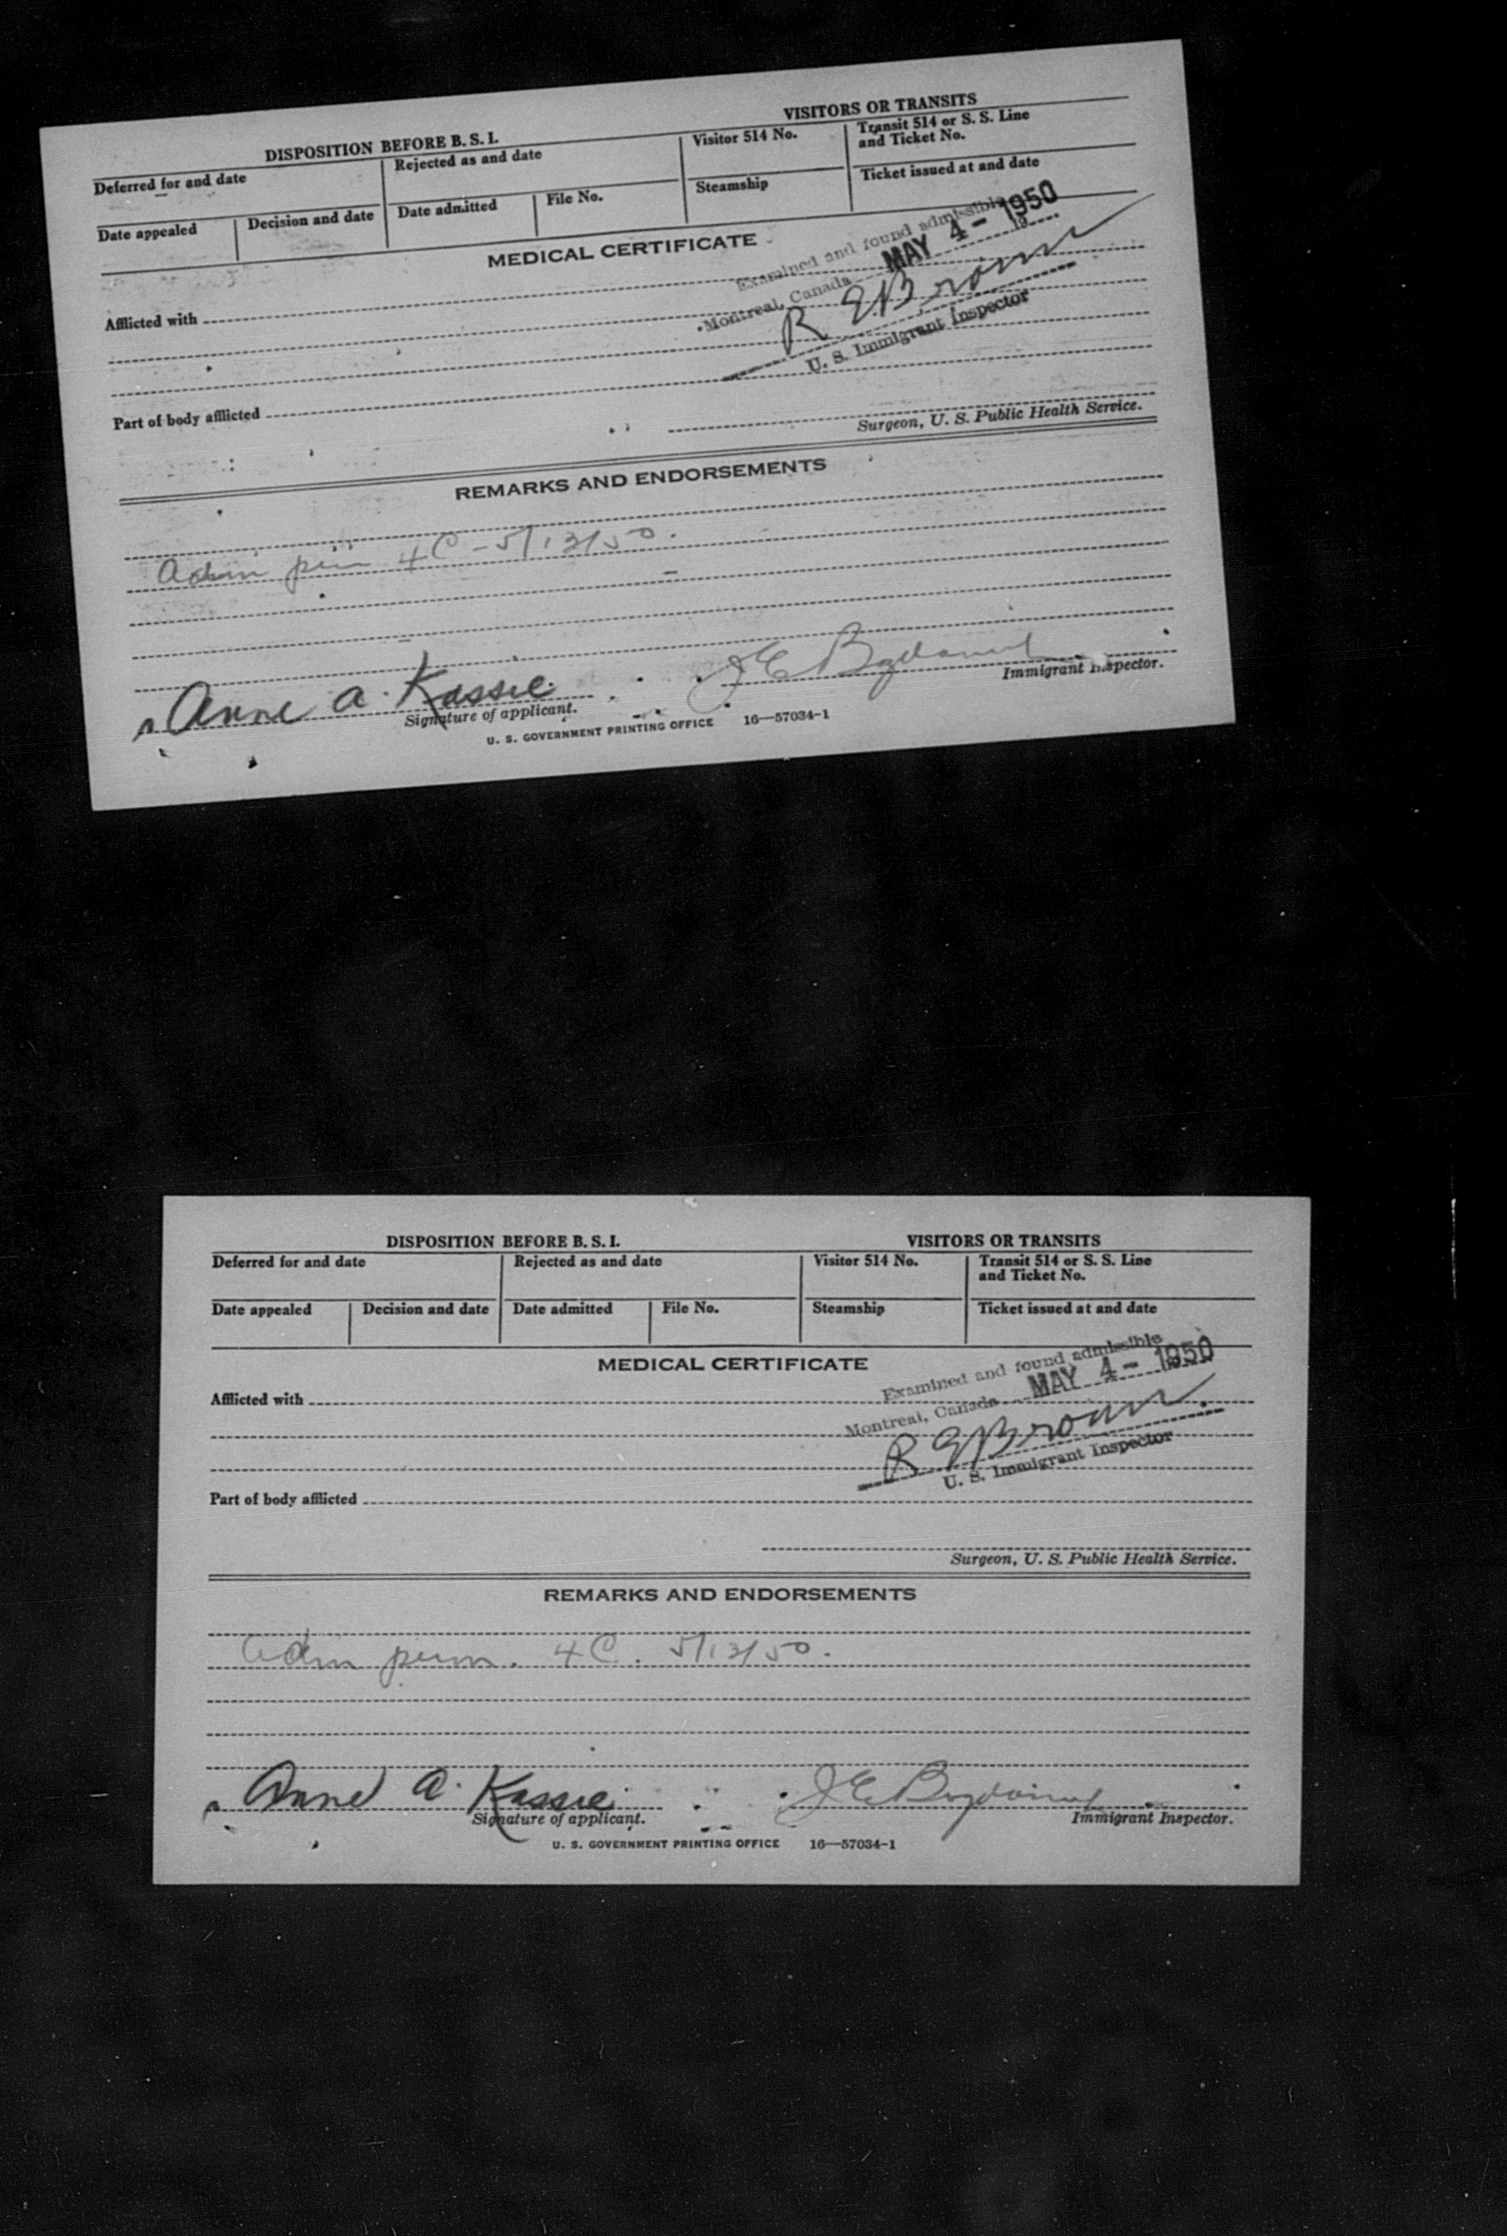 DISPOSITION BEFORE B. S. I.
VISITORS OR TRANSITS
Deferred for and date
Rejected as and date
Visitor 514 No.
Transit 514 or S. S. Line
and Ticket No.
Date appealed
Decision and date
Date admitted
File No.
Steamship
Ticket issued at and date
MEDICAL CERTIFICATE
Examined and found admissible
Montreal, Canada MAY 4 - 1950
19
Afflicted with
R E Brown
U. S. Immigrant Inspector
Part of body afflicted
Surgeon, U. S. Public Health Service.
REMARKS AND ENDORSEMENTS
adm 4C - 5/13/50.
Anne A. Kassie
Signature of applicant.
Immigrant Inspector.
U. S. GOVERNMENT PRINTING OFFICE 16—57034-1
DISPOSITION BEFORE B. S. I.
VISITORS OR TRANSITS
Deferred for and date
Rejected as and date
Visitor 514 No.
Transit 514 or S. S. Line
and Ticket No.
Date appealed
Decision and date
Date admitted
File No.
Steamship
Ticket issued at and date
MEDICAL CERTIFICATE
Examined and found admissible
Montreal, Canada MAY 4 - 1950
Afflicted with
R E Brown
U. S. Immigrant Inspector
Part of body afflicted
Surgeon, U. S. Public Health Service.
REMARKS AND ENDORSEMENTS
adm perm. 4C. 5/13/50.
Anne A. Kassie
Signature of applicant.
Immigrant Inspector.
U. S. GOVERNMENT PRINTING OFFICE 16—57034-1